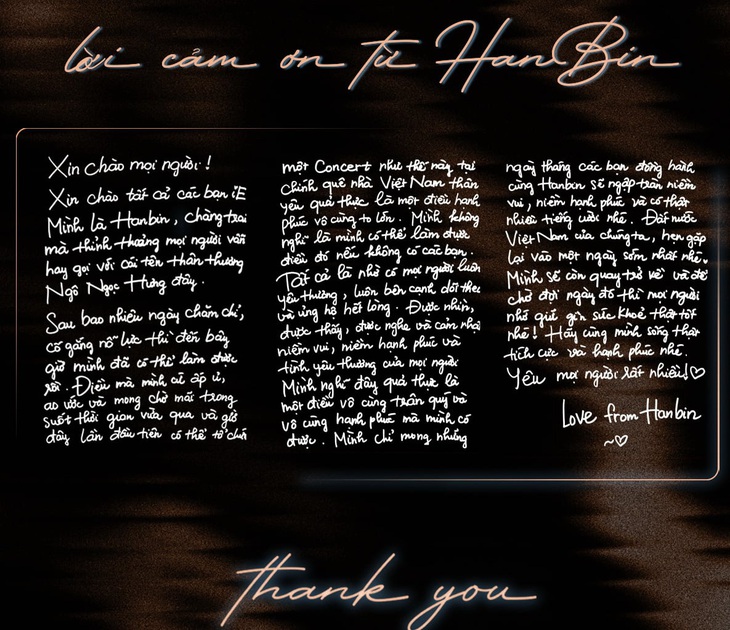 lời cảm ơn từ HanBin
Xin chào mọi người!
Xin chào tất cả các bạn iE
Mình là Hanbin, chàng trai
mà thỉnh thoảng mọi người vẫn
hay gọi với cái tên thân thương
Ngô Ngọc Hưng đây.
Sau bao nhiêu ngày chăm chỉ,
cố gắng nỗ lực thì đến bây
giờ mình đã có thể làm được
rồi. Điều mà mình ấp ủ,
ao ước và mong chờ mãi trong
suốt thời gian vừa qua và giờ
đây lần đầu tiên có thể tổ chức
một Concert như thế này tại
chính quê nhà Việt Nam thân
yêu quả thực là một điều hạnh
phúc vô cùng to lớn. Mình không
nghĩ là mình có thể làm được
điều đó nếu không có các bạn.
Tất cả là nhờ có mọi người luôn
yêu thương, luôn bên cạnh dõi theo
và ủng hộ hết lòng. Được nhìn,
được thấy, được nghe và cảm nhận
niềm vui, niềm hạnh phúc và
tình yêu thương của mọi người
Mình nghĩ đây quả thực là
một điều vô cùng trân quý và
vô cùng hạnh phúc mà mình có
được. Mình chỉ mong những
ngày tháng các bạn đồng hành
cùng Hanbin sẽ ngập tràn niềm
vui, niềm hạnh phúc và có thật
nhiều tiếng cười nhé. Đất nước
Việt Nam của chúng ta, hẹn gặp
lại vào một ngày sớm nhất nhé.
Mình sẽ còn quay trở về và để
chờ đợi ngày đó thì mọi người
nhớ giữ gìn sức khoẻ thật tốt
nhé! Hãy cùng mình sống thật
tích cực và hạnh phúc nhé.
Yêu mọi người rất nhiều!♡
Love from Hanbin
~♡
thank you